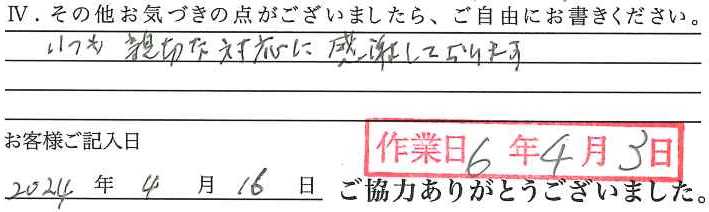 Ⅳ．その他お気づきの点がございましたら、ご自由にお書きください。
いつも親切な対応に感謝しております
お客様ご記入日
作業日6年4月3日
2024年4月16日 ご協力ありがとうございました。